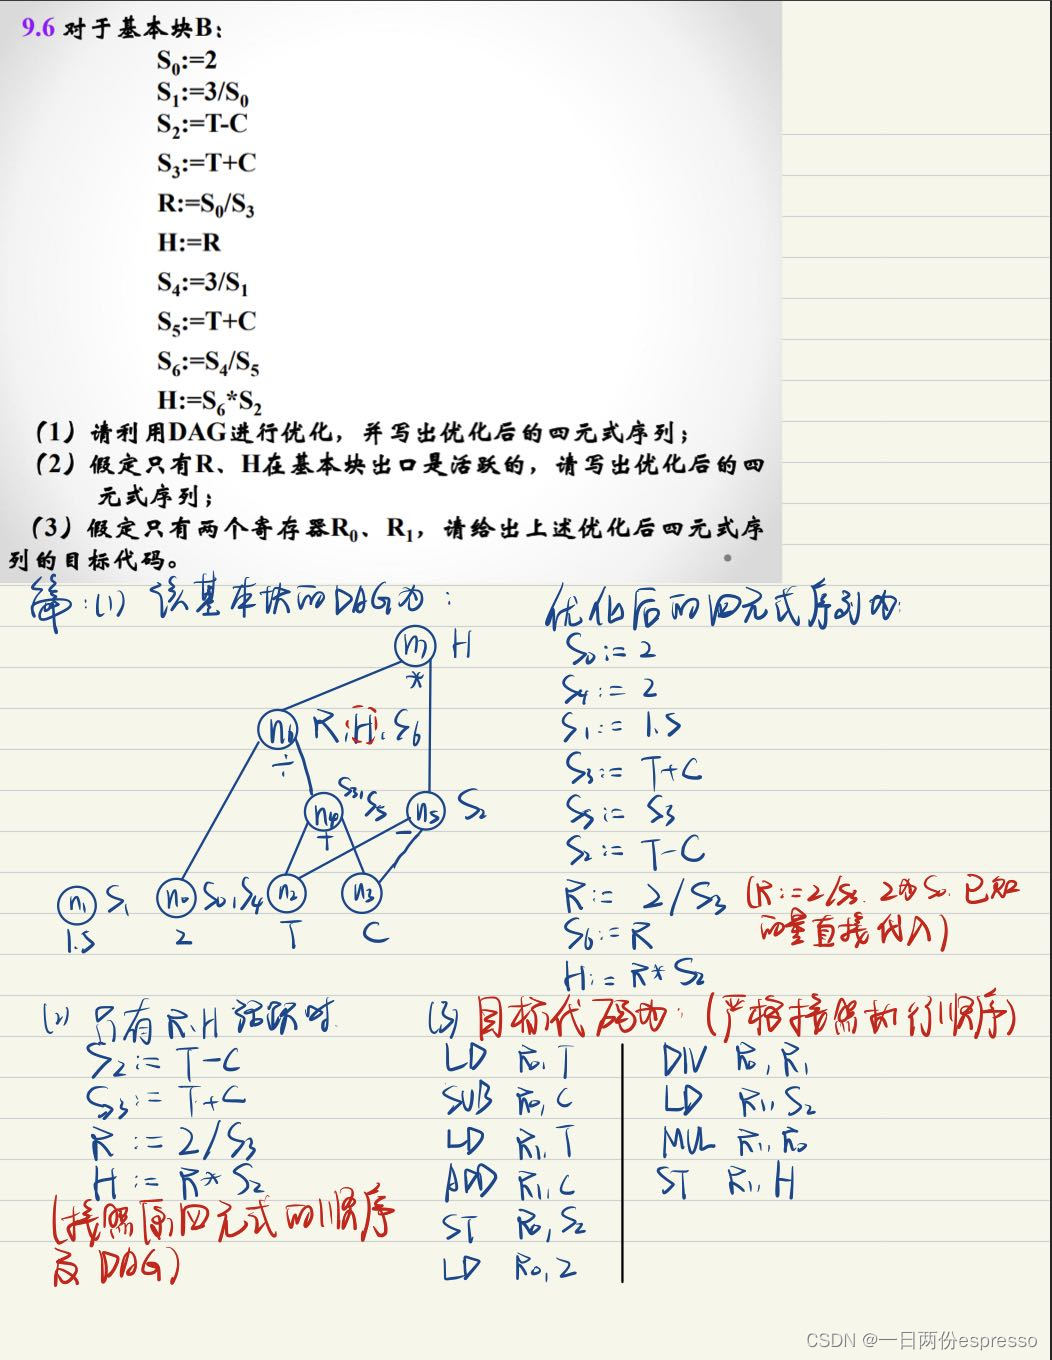 9.6 对于基本块B：
S0:=2
S1:=3/S0
S2:=T-C
S3:=T+C
R:=S0/S3
H:=R
S4:=3/S1
S5:=T+C
S6:=S4/S5
H:=S6*S2
（1）请利用DAG进行优化，并写出优化后的四元式序列；
（2）假定只有R、H在基本块出口是活跃的，请写出优化后的四
元式序列；
（3）假定只有两个寄存器R0、R1，请给出上述优化后四元式序
列的目标代码。
解:(1) 该基本块的DAG为:
n7 H
*
n6 R,H,S6
÷
n4 S3,S5
+
n5 S2
-
n1 S1
1.5
n0 S0,S4
2
n2
T
n3
C
优化后的四元式序列为:
S0:=2
S4:=2
S1:=1.5
S3:=T+C
S5:=S3
S2:=T-C
R:=2/S3 (R:=2/S3. 2为S0 已知
的量直接代入)
S6:=R
H:=R*S2
(2) 只有R,H活跃时
S2:=T-C
S3:=T+C
R:=2/S3
H:=R*S2
(按照原四元式的顺序
及DAG)
(3) 目标代码为:(严格按照执行顺序)
LD R0,T
SUB R0,C
LD R1,T
ADD R1,C
ST R0,S2
LD R0,2
DIV R0,R1
LD R1,S2
MUL R1,R0
ST R1,H
CSDN @一日两份espresso